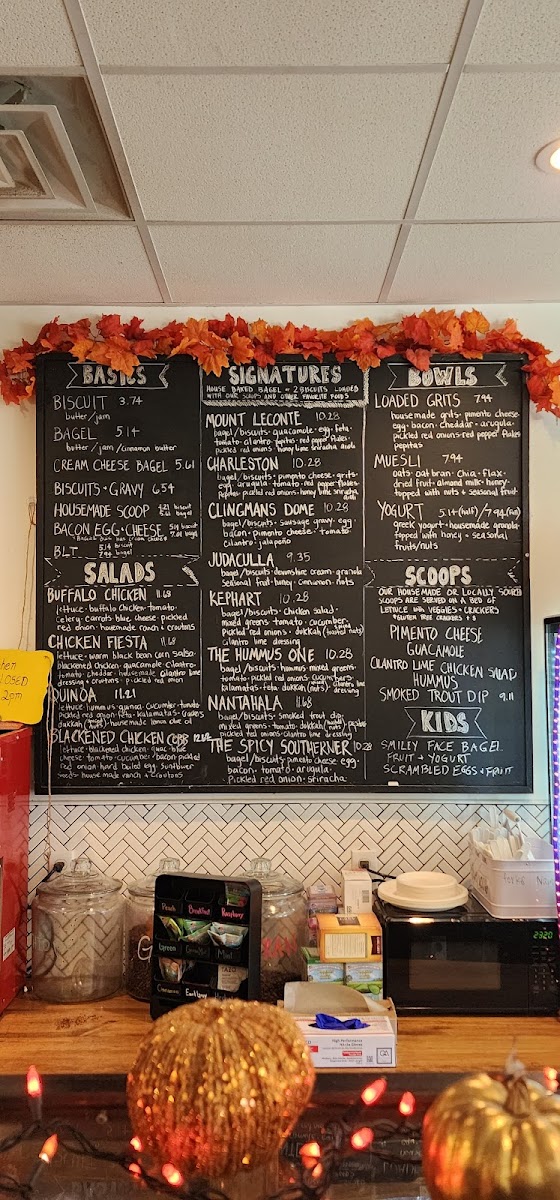 BASICS
BISCUIT 3.74
butter/jam
BAGEL 5.14
butter/jam/cinnamon butter
CREAM CHEESE BAGEL 5.61
BISCUITS + GRAVY 6.54
HOUSEMADE SCOOP
BACON EGG + CHEESE
BLT
SALADS
BUFFALO CHICKEN 11.68
lettuce · buffalo chicken · tomato ·
celery · carrots · blue cheese · pickled
red onion · homemade ranch & croutons
CHICKEN FIESTA 11.68
lettuce · warm black bean corn salsa
blackened chicken · guacamole · cilantro ·
tomato · cheddar · housemade cilantro lime
dressing & croutons · pickled red onion
QUINOA 11.21
lettuce · hummus · quinoa · cucumber · tomato
pickled red onion · feta · kalamatas
BLACKENED CHICKEN
lettuce · blackened chicken · guac · blue
cheese · tomato · cucumber · bacon · pickled
red onion · hard boiled egg · sunflower
seeds · housemade ranch & croutons
SIGNATURES
HOUSE BAKED BAGEL or 2 BISCUITS LOADED
WITH OUR SCOOPS AND OTHER FAVORITE FOODS
MOUNT LECONTE 10.28
bagel/biscuits · guacamole · egg · feta ·
tomato · cilantro · pepitas · red pepper flakes ·
pickled red onions · honey lime sriracha
CHARLESTON 10.28
bagel/biscuits · pimento cheese · grits ·
egg · arugula · tomato · red pepper flakes
pepitas · pickled red onions · honey lime sriracha
CLINGMANS DOME 10.28
bagel/biscuits · sausage gravy · egg ·
bacon · pimento cheese · tomato ·
cilantro · jalapeño
JUDACULLA 9.35
bagel/biscuits · devonshire cream · granola
seasonal fruit · honey · cinnamon · nuts
KEPHART 10.28
bagel/biscuits · chicken salad ·
mixed greens · tomato · cucumber ·
pickled red onions · dukkah (toasted nuts)
cilantro lime dressing
THE HUMMUS ONE 10.28
bagel/biscuits · hummus · mixed greens ·
tomato · pickled red onions · cucumbers ·
kalamatas · feta · dukkah (nuts) · cilantro lime
dressing
NANTAHALA 11.68
bagel/biscuits · smoked trout dip ·
mixed greens · tomato · dukkah (nuts)
pickled red onions · cilantro lime dressing
THE SPICY SOUTHERNER 10.28
bagel/biscuits · pimento cheese · egg ·
bacon · tomato · arugula ·
pickled red onion · sriracha
BOWLS
LOADED GRITS 7.94
housemade grits · pimento cheese
egg · bacon · cheddar · arugula ·
pickled red onions · red pepper flakes
pepitas
MUESLI 7.94
oats · oat bran · chia · flax ·
dried fruit · almond milk · honey
topped with nuts + seasonal fruit
YOGURT 5.14 (half) / 7.94 (full)
greek yogurt · housemade granola
topped with honey + seasonal
fruits/nuts
SCOOPS
OUR HOUSEMADE OR LOCALLY SOURCED
SCOOPS ARE SERVED ON A BED OF
LETTUCE with VEGGIES + CRACKERS
PIMENTO CHEESE
GUACAMOLE
CILANTRO LIME CHICKEN SALAD
HUMMUS
SMOKED TROUT DIP 9.11
KIDS
SMILEY FACE BAGEL
FRUIT + YOGURT
SCRAMBLED EGGS + FRUIT
2pm
Peach
Breakfast
Raspberry
Green
Mint
Cinnamon
Earl Grey
2320